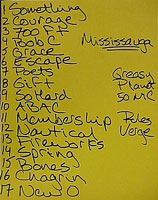 1 Something
2 Courage
3 700 Ft
4 Poob C
5 Grace
6 Escape
7 Poets
8 Gift
9 So Hard
10 ABAC
11 Membership
12 Nautical
13 Fireworks
14 Spring
15 Bones
16 Chagrin
17 New O
Mississauga
Greasy
Planet
50 MC
Poles
Verge